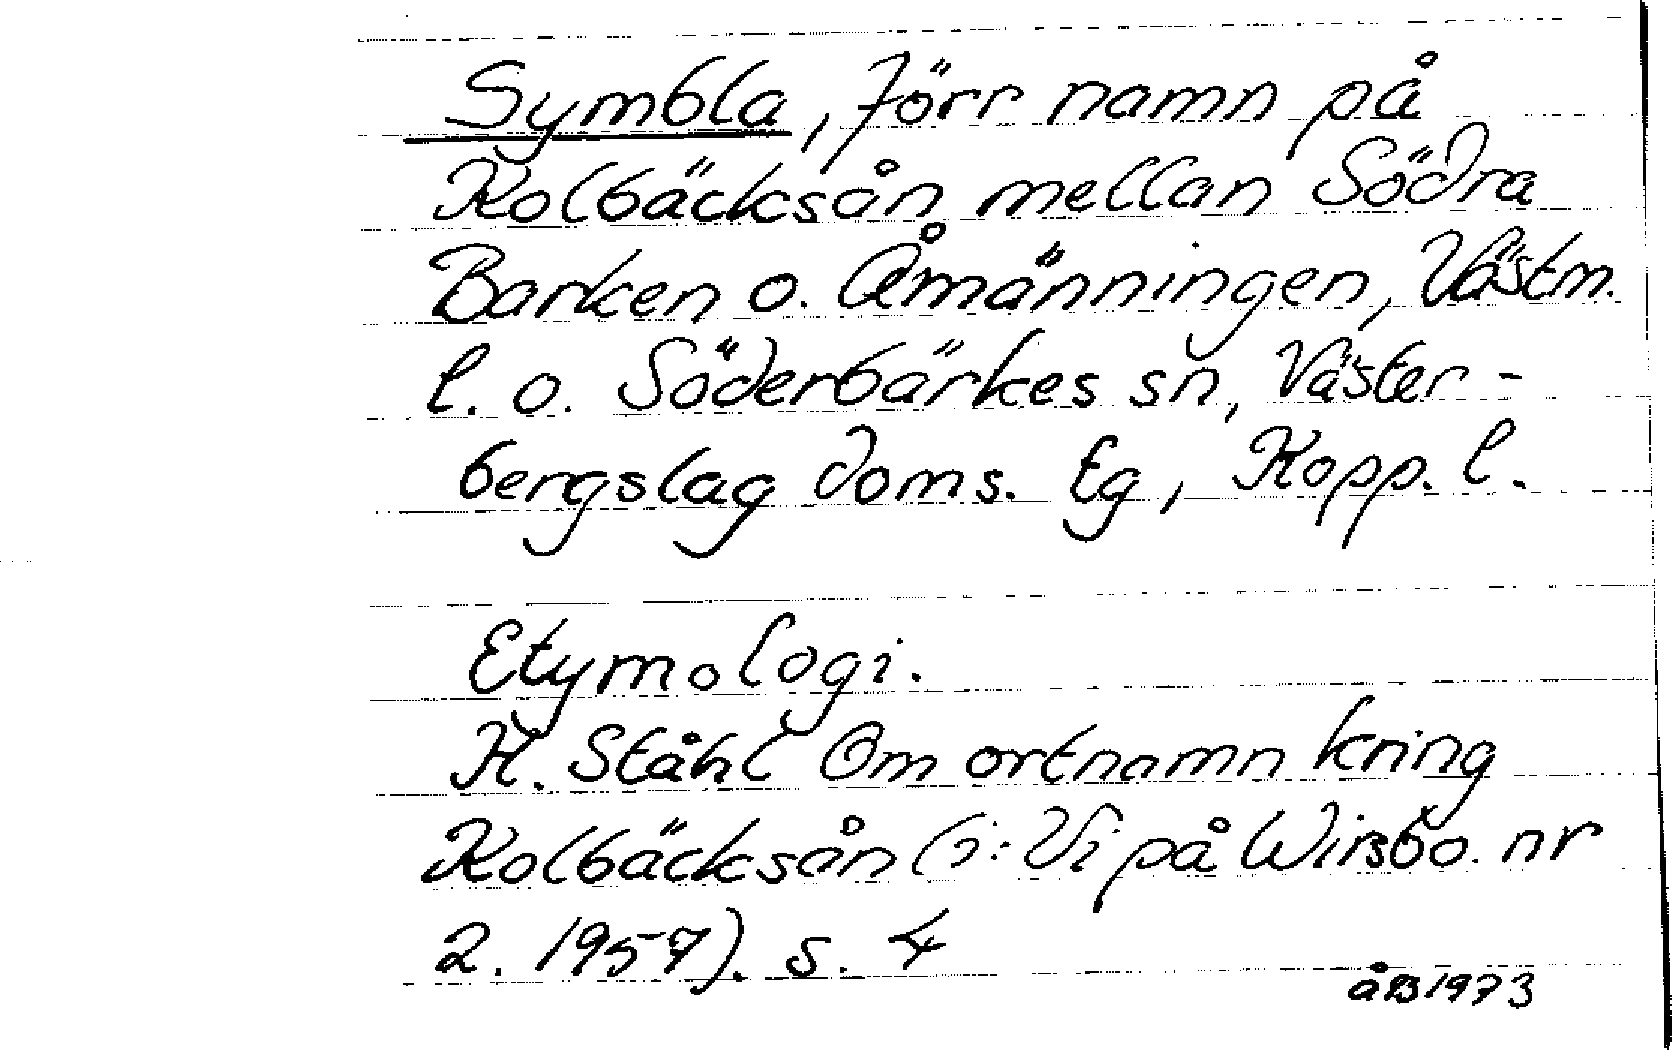 Symbla, förr namn på
Kolbäcksån mellan Södra
Barken o. Åmänningen, Västm.
l. o. Söderbärkes sn, Väster-
bergslag doms. tg, Kopp. l.
Etymologi.
H. Ståhl Om ortnamn kring
Kolbäcksån (i: Vi på Wirsbo. nr
2. 1957). s. 4
åB 1973